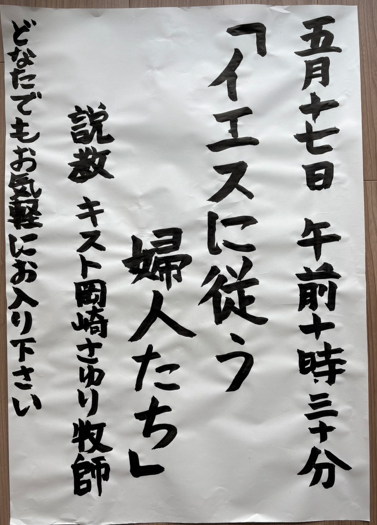 五月十七日 午前十時三十分
「イエスに従う
婦人たち」
説教 キスト岡崎さゆり牧師
どなたでもお気軽にお入り下さい